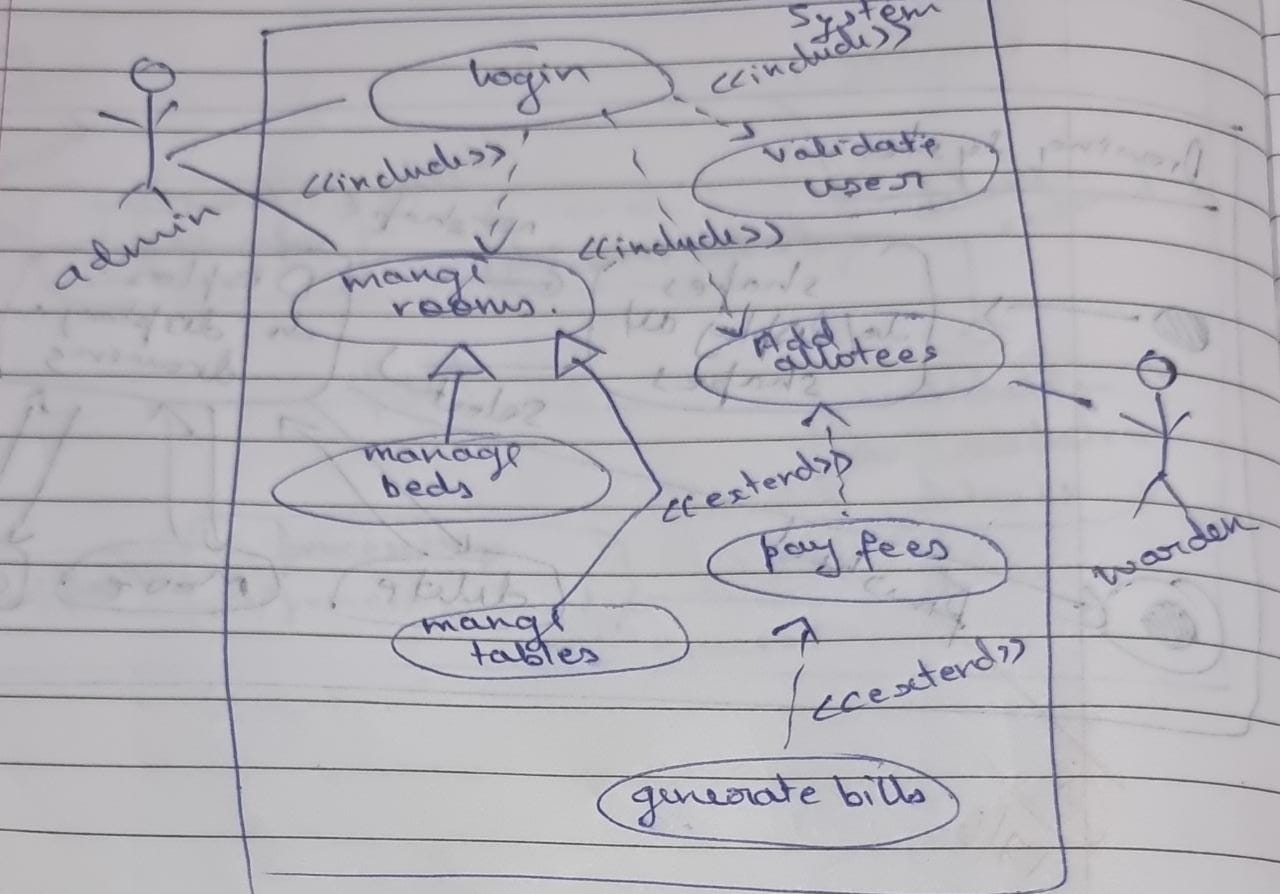 System
<<include>>
login
validate
user
<<include>>
admin
<<include>>
mange
rooms.
Add
allotees
manage
beds
<<extend>>
pay fees
warden
mange
tables
<<extend>>
generate bills